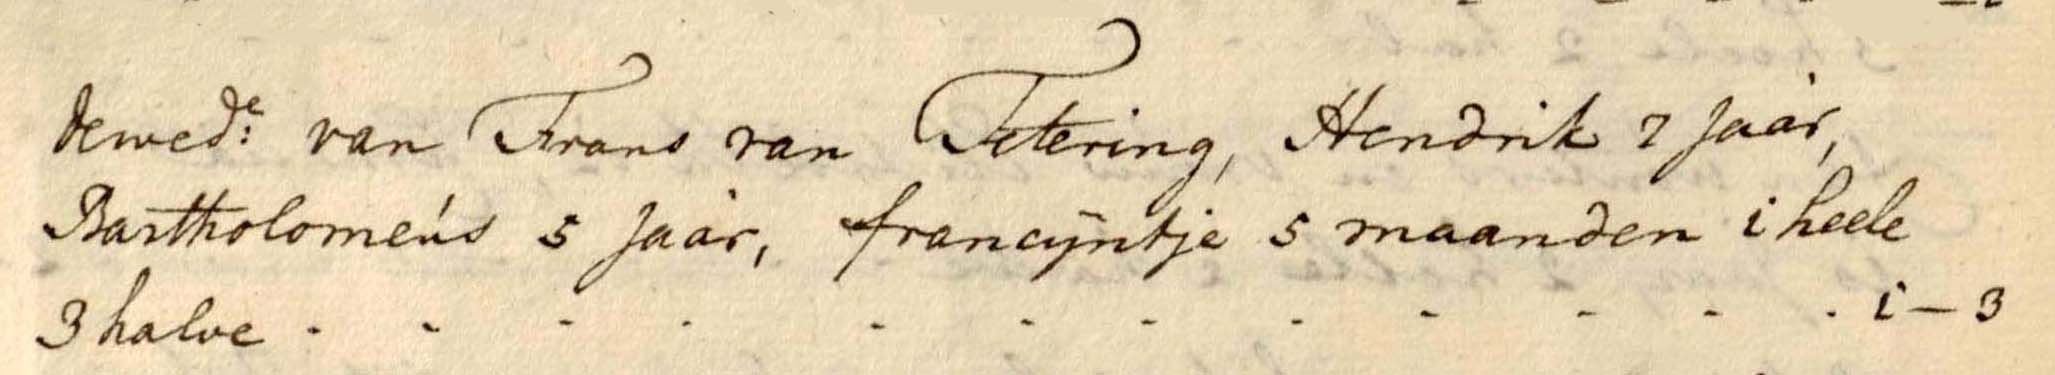 de wed:e van Frans van Tetering, Hendrik 7 Jaar,
Bartholomeus 5 Jaar, francijntje 5 maanden i heele
3 halve - - - - - - - - - - - - i - 3